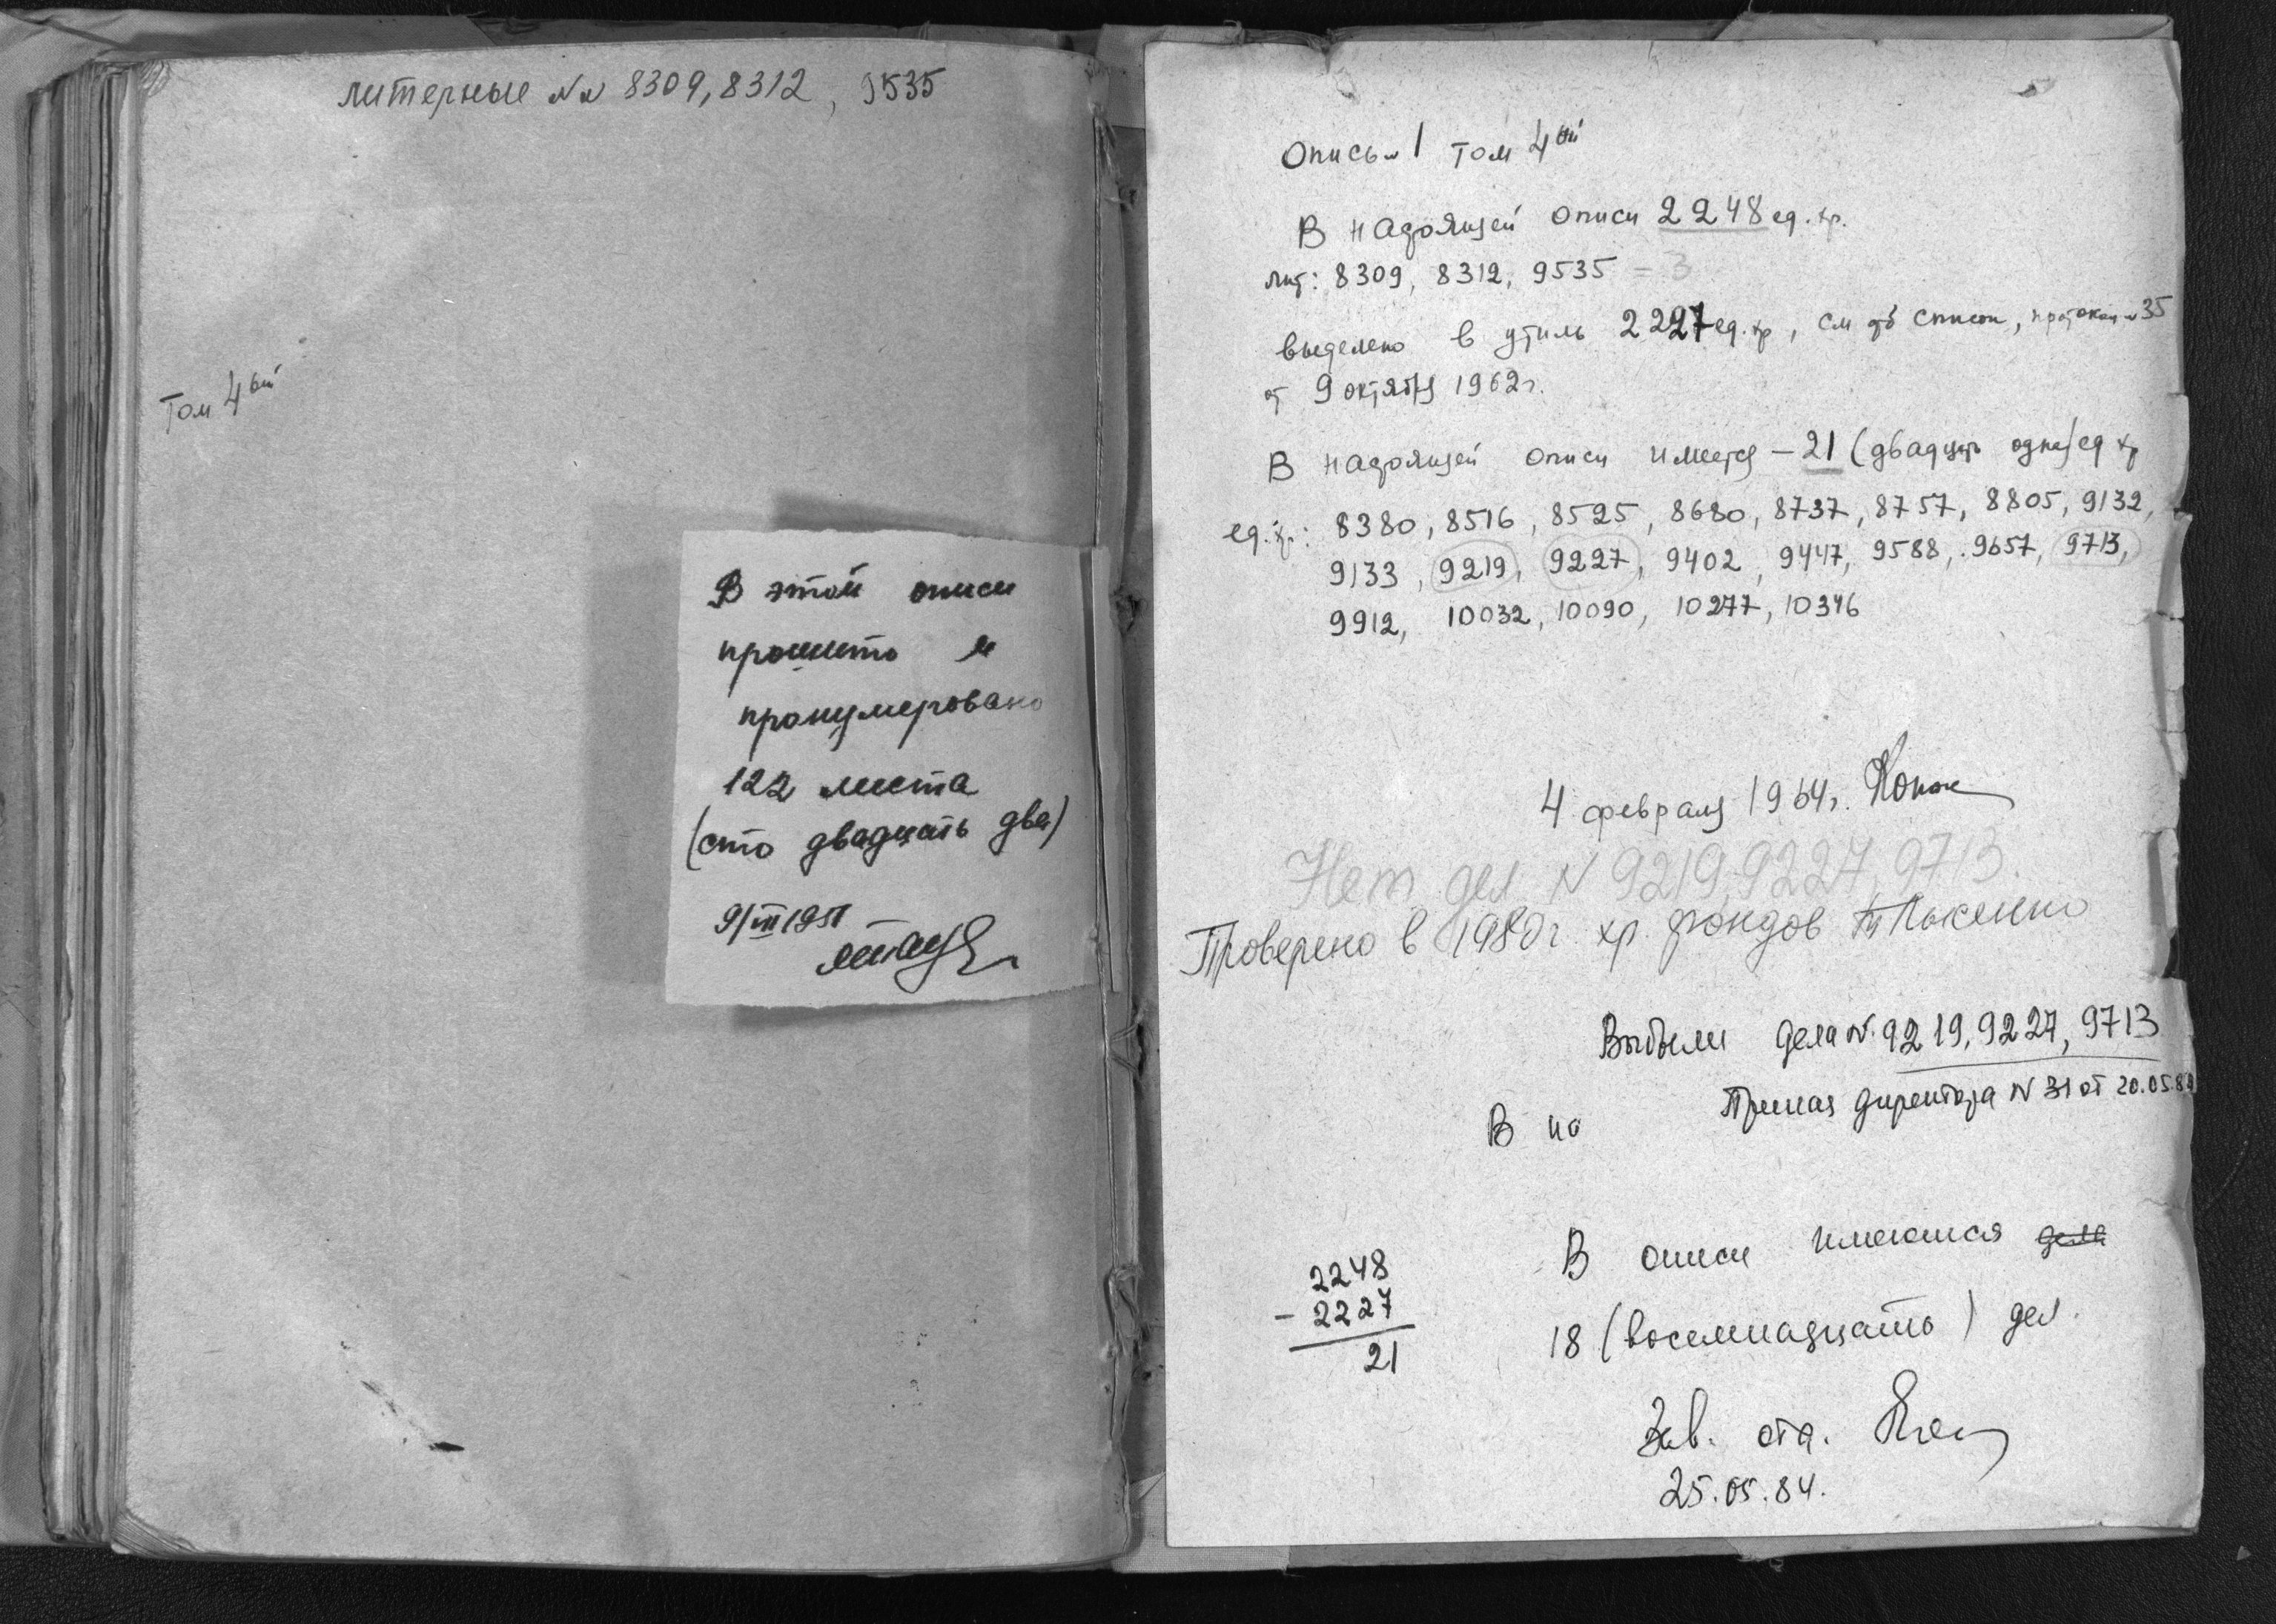 литерные №№ 8309, 8312, 9535
Том 4ый
В этой описи
прошито и
пронумеровано
122 листа
(сто двадцать два)
9/III 195
Опись № 1 Том 4ый
В настоящей описи 2248 ед. хр.
лит: 8309, 8312, 9535 = 3
выделено в утиль 2227 ед. хр, см список, протокол № 35
от 9 октября 1962 г.
В настоящей описи имеется – 21 (двадцать одна) ед хр
ед. хр.: 8380, 8516, 8525, 8680, 8737, 8757, 8805, 9132,
9133, 9219, 9227, 9402, 9447, 9588, 9657, 9713,
9912, 10032, 10090, 10277, 10346
4 февраля 1964 г.
Нет дел N 9219, 9227, 9713.
Проверено в 1980 г хр. фондов
Выбыли дела N. 9219, 9227, 9713
Приказ директора N 31 от 20.05.84
В на
В описи имеются дела
18 (восемнадцать) дел.
2248
- 2227
21
Зав. отд.
25.05.84.